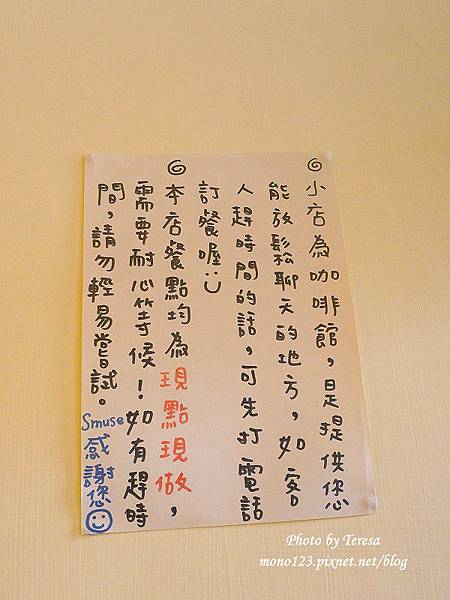 小店為咖啡館，是提供您
能放鬆聊天的地方，如客
人趕時間的話，可先打電話
訂餐喔:)
本店餐點均為現點現做，
需要耐心等候！如有趕時
間，請勿輕易嘗試。
Smuse
感謝您
Photo by Teresa
mono123.pixnet.net/blog